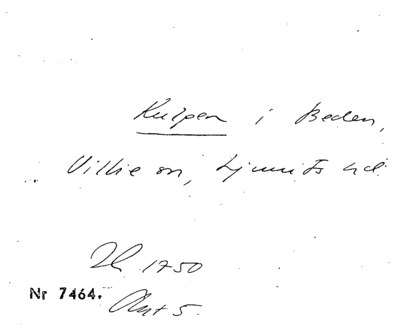 Kulpen i Beden,
Villie sn, Ljunits hd.
Jh 1750
Nr 7464. Akt 5.